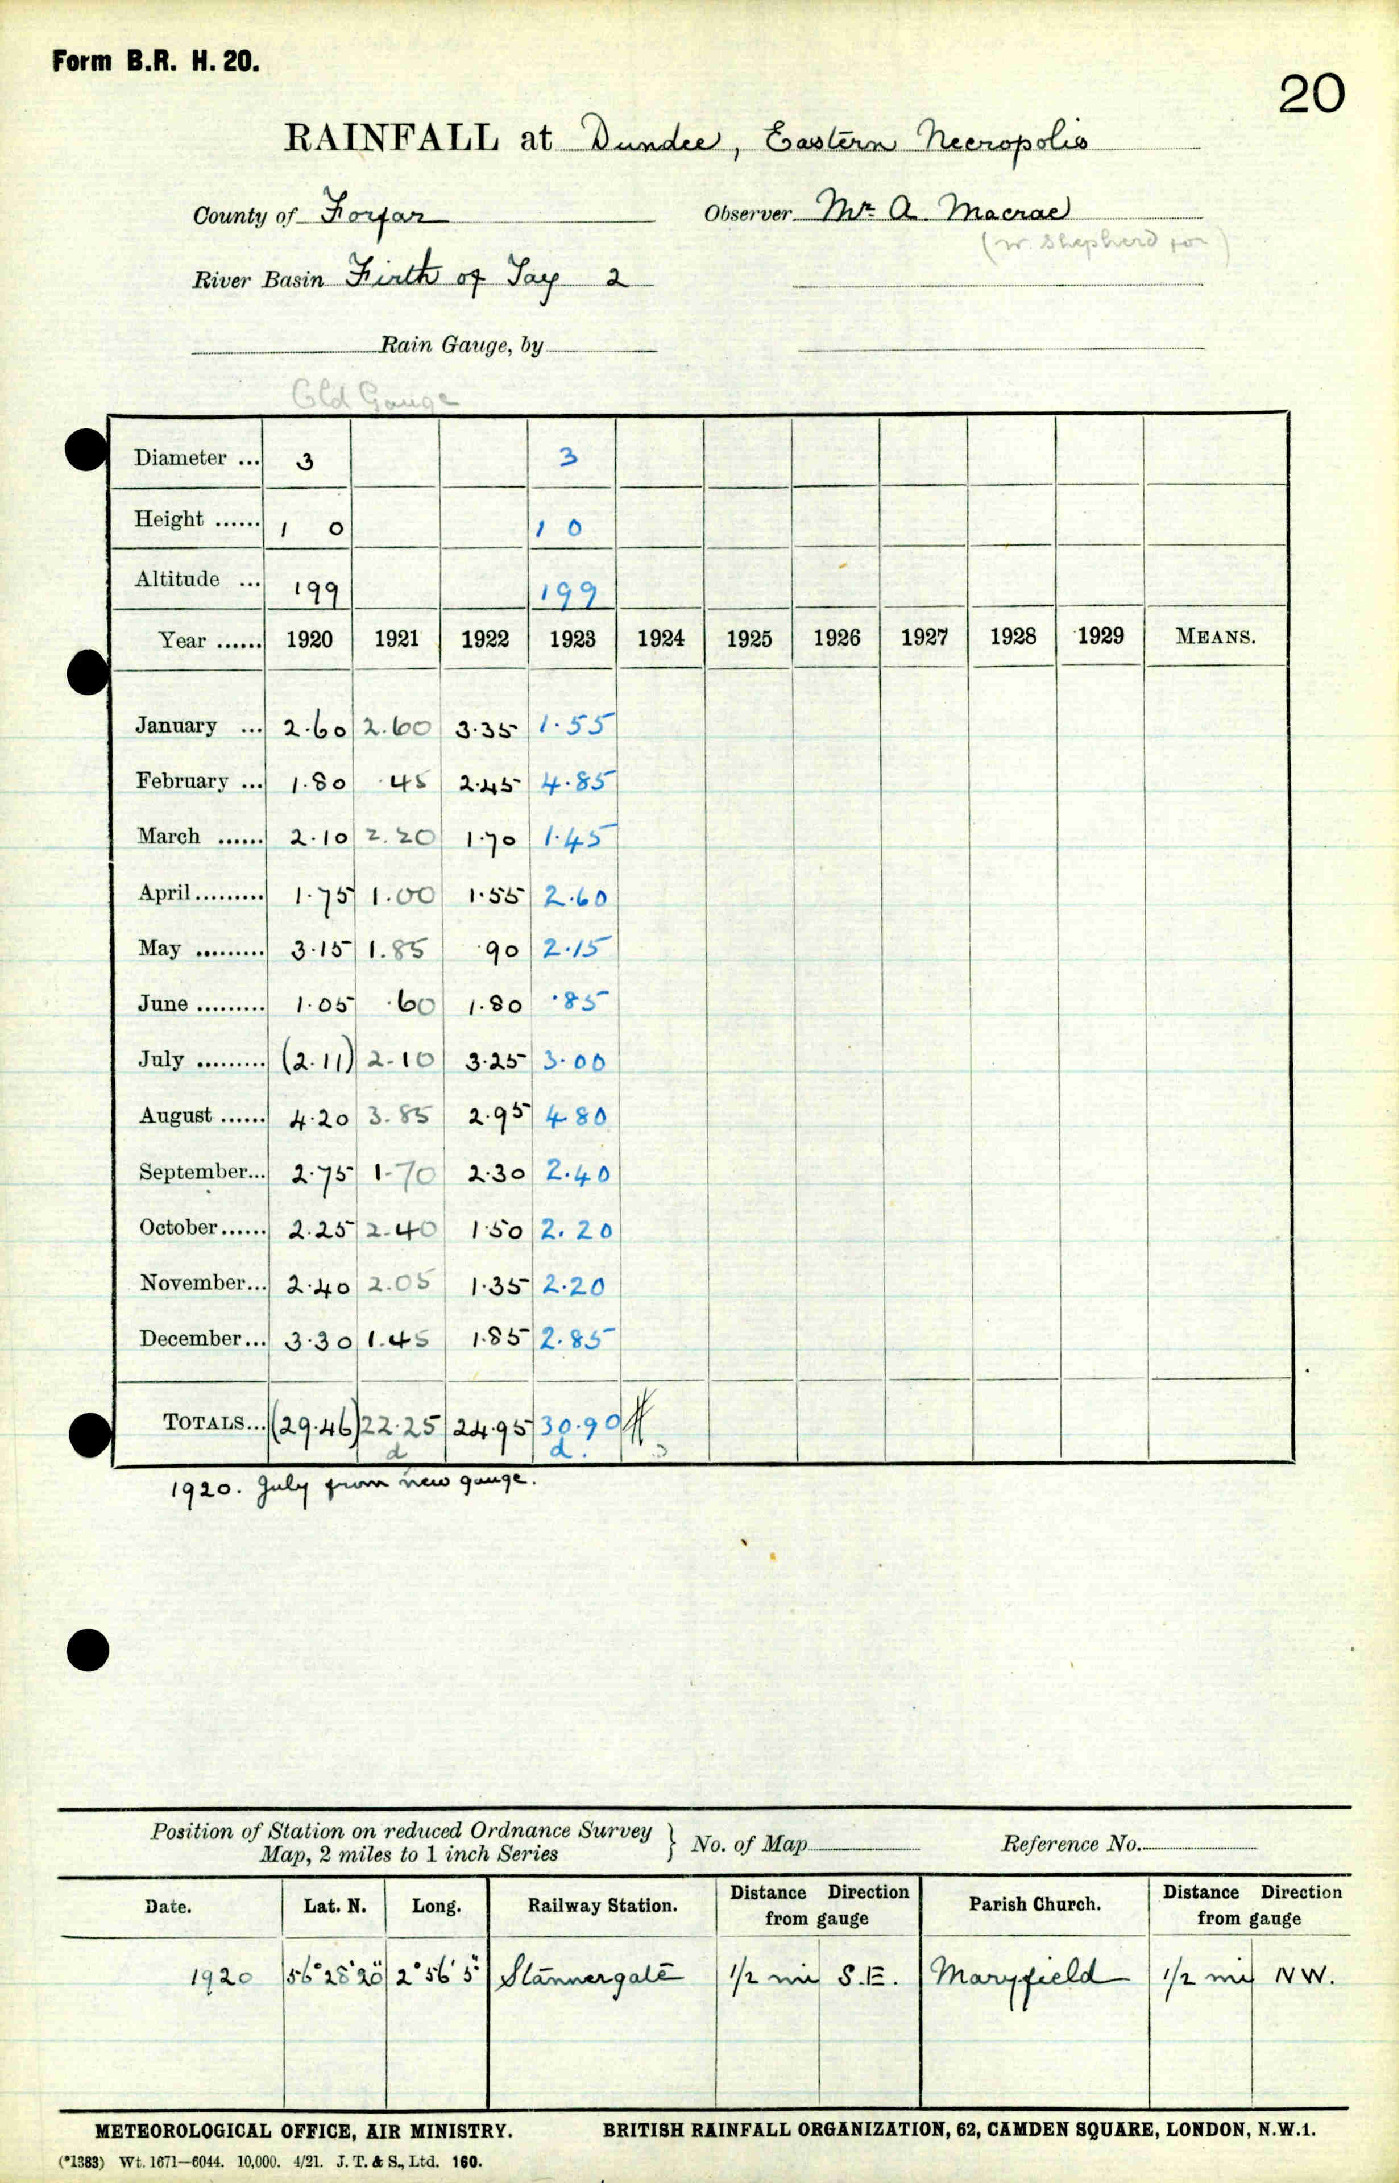 Form B.R. H. 20.
20
RAINFALL at Dundee, Eastern Necropolis
County of Forfar Observer Mr. A. Macrae
(W. Shepherd for)
River Basin Firth of Tay 2
Rain Gauge, by
Old Gauge
Diameter ... 3 3
Height ...... 1 0 1 0
Altitude ... 199 199
Year ...... 1920 1921 1922 1923 1924 1925 1926 1927 1928 1929 MEANS.
January ... 2.60 2.60 3.35 1.55
February ... 1.80 .45 2.45 4.85
March ...... 2.10 2.20 1.70 1.45
April ......... 1.75 1.00 1.55 2.60
May ......... 3.15 1.85 .90 2.15
June ......... 1.05 .60 1.80 .85
July ......... (2.11) 2.10 3.25 3.00
August ...... 4.20 3.85 2.95 4 80
September... 2.75 1.70 2.30 2.40
October...... 2.25 2.40 1.50 2.20
November... 2.40 2.05 1.35 2.20
December... 3.30 1.45 1.85 2.85
TOTALS... (29.46) 22.25 24.95 30.90
d d.
1920. July from new gauge.
Position of Station on reduced Ordnance Survey
Map, 2 miles to 1 inch Series } No. of Map Reference No.
Date. Lat. N. Long. Railway Station. Distance from gauge Direction Parish Church. Distance from gauge Direction
1920 56° 28' 20" 2° 56' 5" Stannergate 1/2 mi S.E. Maryfield 1/2 mi NW.
METEOROLOGICAL OFFICE, AIR MINISTRY. BRITISH RAINFALL ORGANIZATION, 62, CAMDEN SQUARE, LONDON, N.W.1.
(*1383) Wt. 1671—6044. 10,000. 4/21. J. T. & S., Ltd. 160.